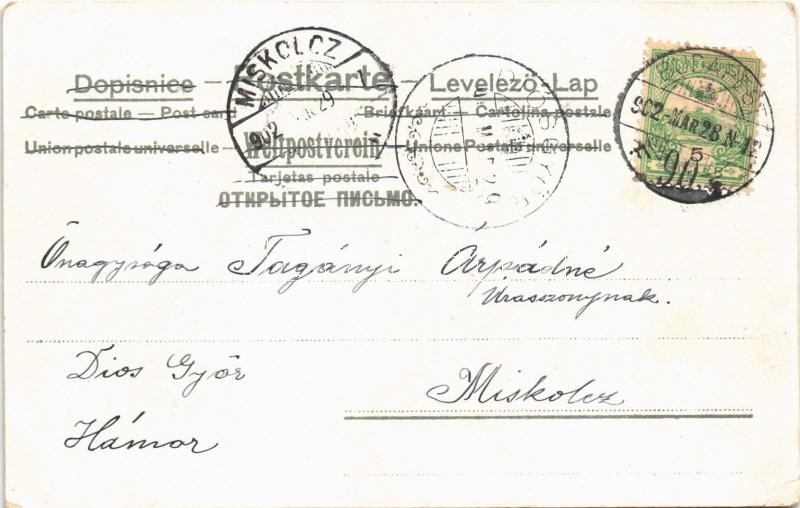 Dopisnice – Postkarte – Levelező-Lap
Carte postale – Post card – Briefkaart – Cartolina postale
Union postale universelle – Weltpostverein – Unione Postale universelle
Tarjetas postale
ОТКРЫТОЕ ПИСЬМО.
MISKOLCZ
902
29
902-MÁR 28 N
5
90
Őnagysága Tagányi Árpádné
Úrasszonynak.
Dios Győr
Miskolcz
Hámor